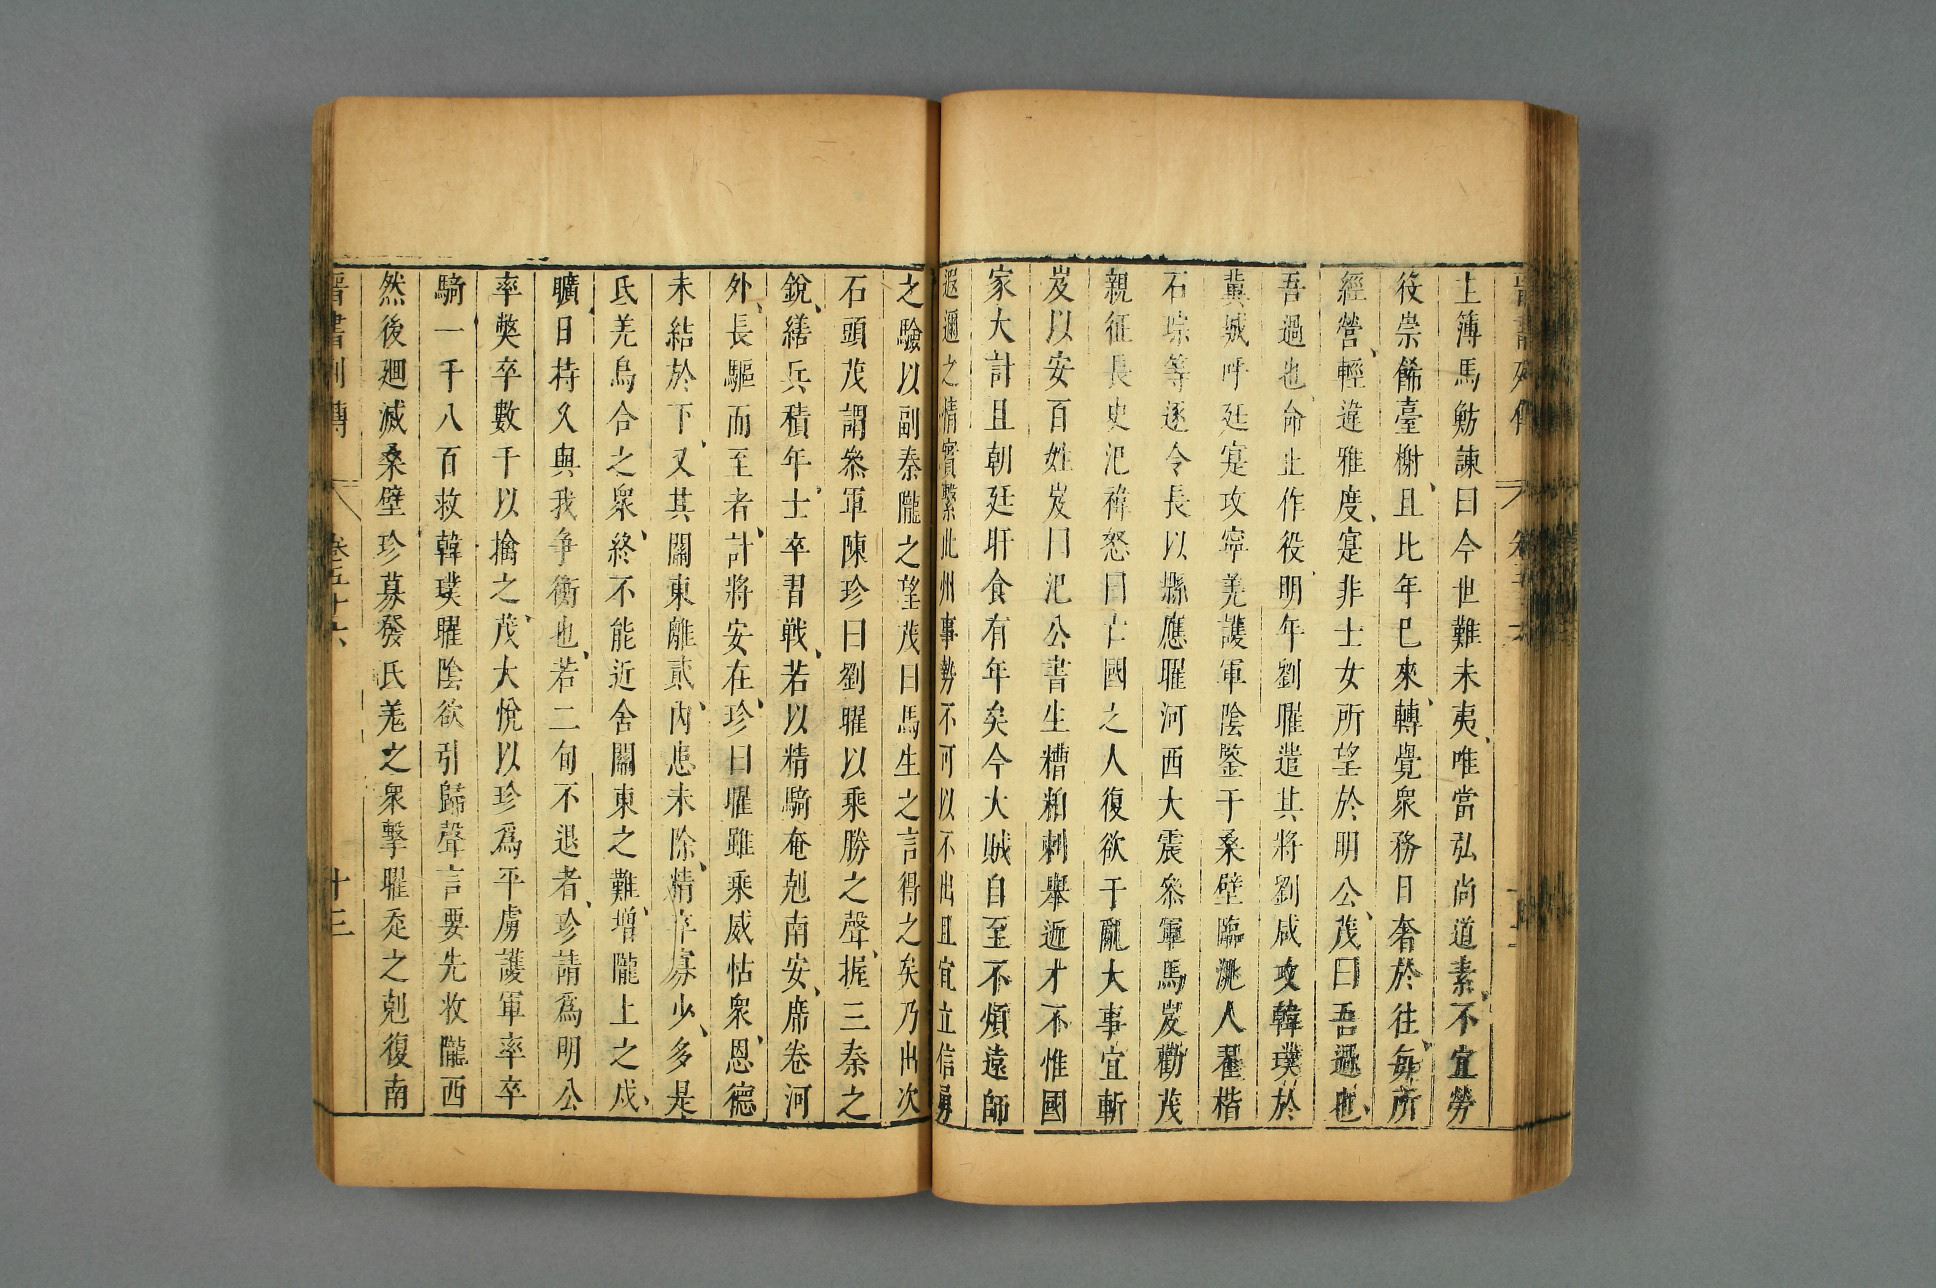 主簿馬魴諫曰今世難未夷唯當弘尚道素不宜勞
役崇餙臺榭且比年已來轉覺衆務日奢於往每所
經營輕違雅度寔非士女所望於明公茂曰吾過也
吾過也命止作役明年劉曜遣其將劉咸攻韓璞於
冀城呼延寔攻寧羌護軍陰鑒于桑壁臨洮人翟楷
石琮等逐令長以縣應曜河西大震叅軍馬岌勸茂
親征長史氾禕怒曰亡國之人復欲干亂大事宜斬
岌以安百姓岌曰氾公書生糟粕刺舉近才不惟國
家大計且朝廷旰食有年矣今大賊自至不煩遠師
遐邇之情實繫此州事勢不可以不出且宜立信勇
之驗以副秦隴之望茂曰馬生之言得之矣乃出次
石頭茂謂叅軍陳珍曰劉曜以乘勝之聲握三秦之
銳繕兵積年士卒習戰若以精騎奄剋南安席卷河
外長驅而至者計將安在珍曰曜雖乘威怙衆恩德
未結於下又其關東離貳內患未除精卒寡少多是
氐羌烏合之衆終不能近舍關東之難增隴上之戍
曠日持久與我爭衡也若二旬不退者珍請爲明公
率獘卒數千以擒之茂大悅以珍爲平虜護軍率卒
騎一千八百救韓璞曜陰欲引歸聲言要先收隴西
然後廻滅桑壁珍募發氐羌之衆擊曜走之剋復南
晉書列傳 卷五十六 十三